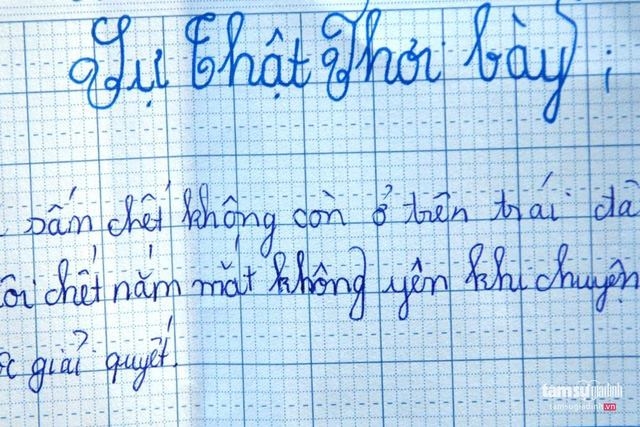 Sự thật Phơi bày:
sấm chết không còn ở trên trái đấ
ôi chết nắm mắt không yên khi chuyện
c giải quyết.
tâm sự gia đình
tamsugiadinh.vn